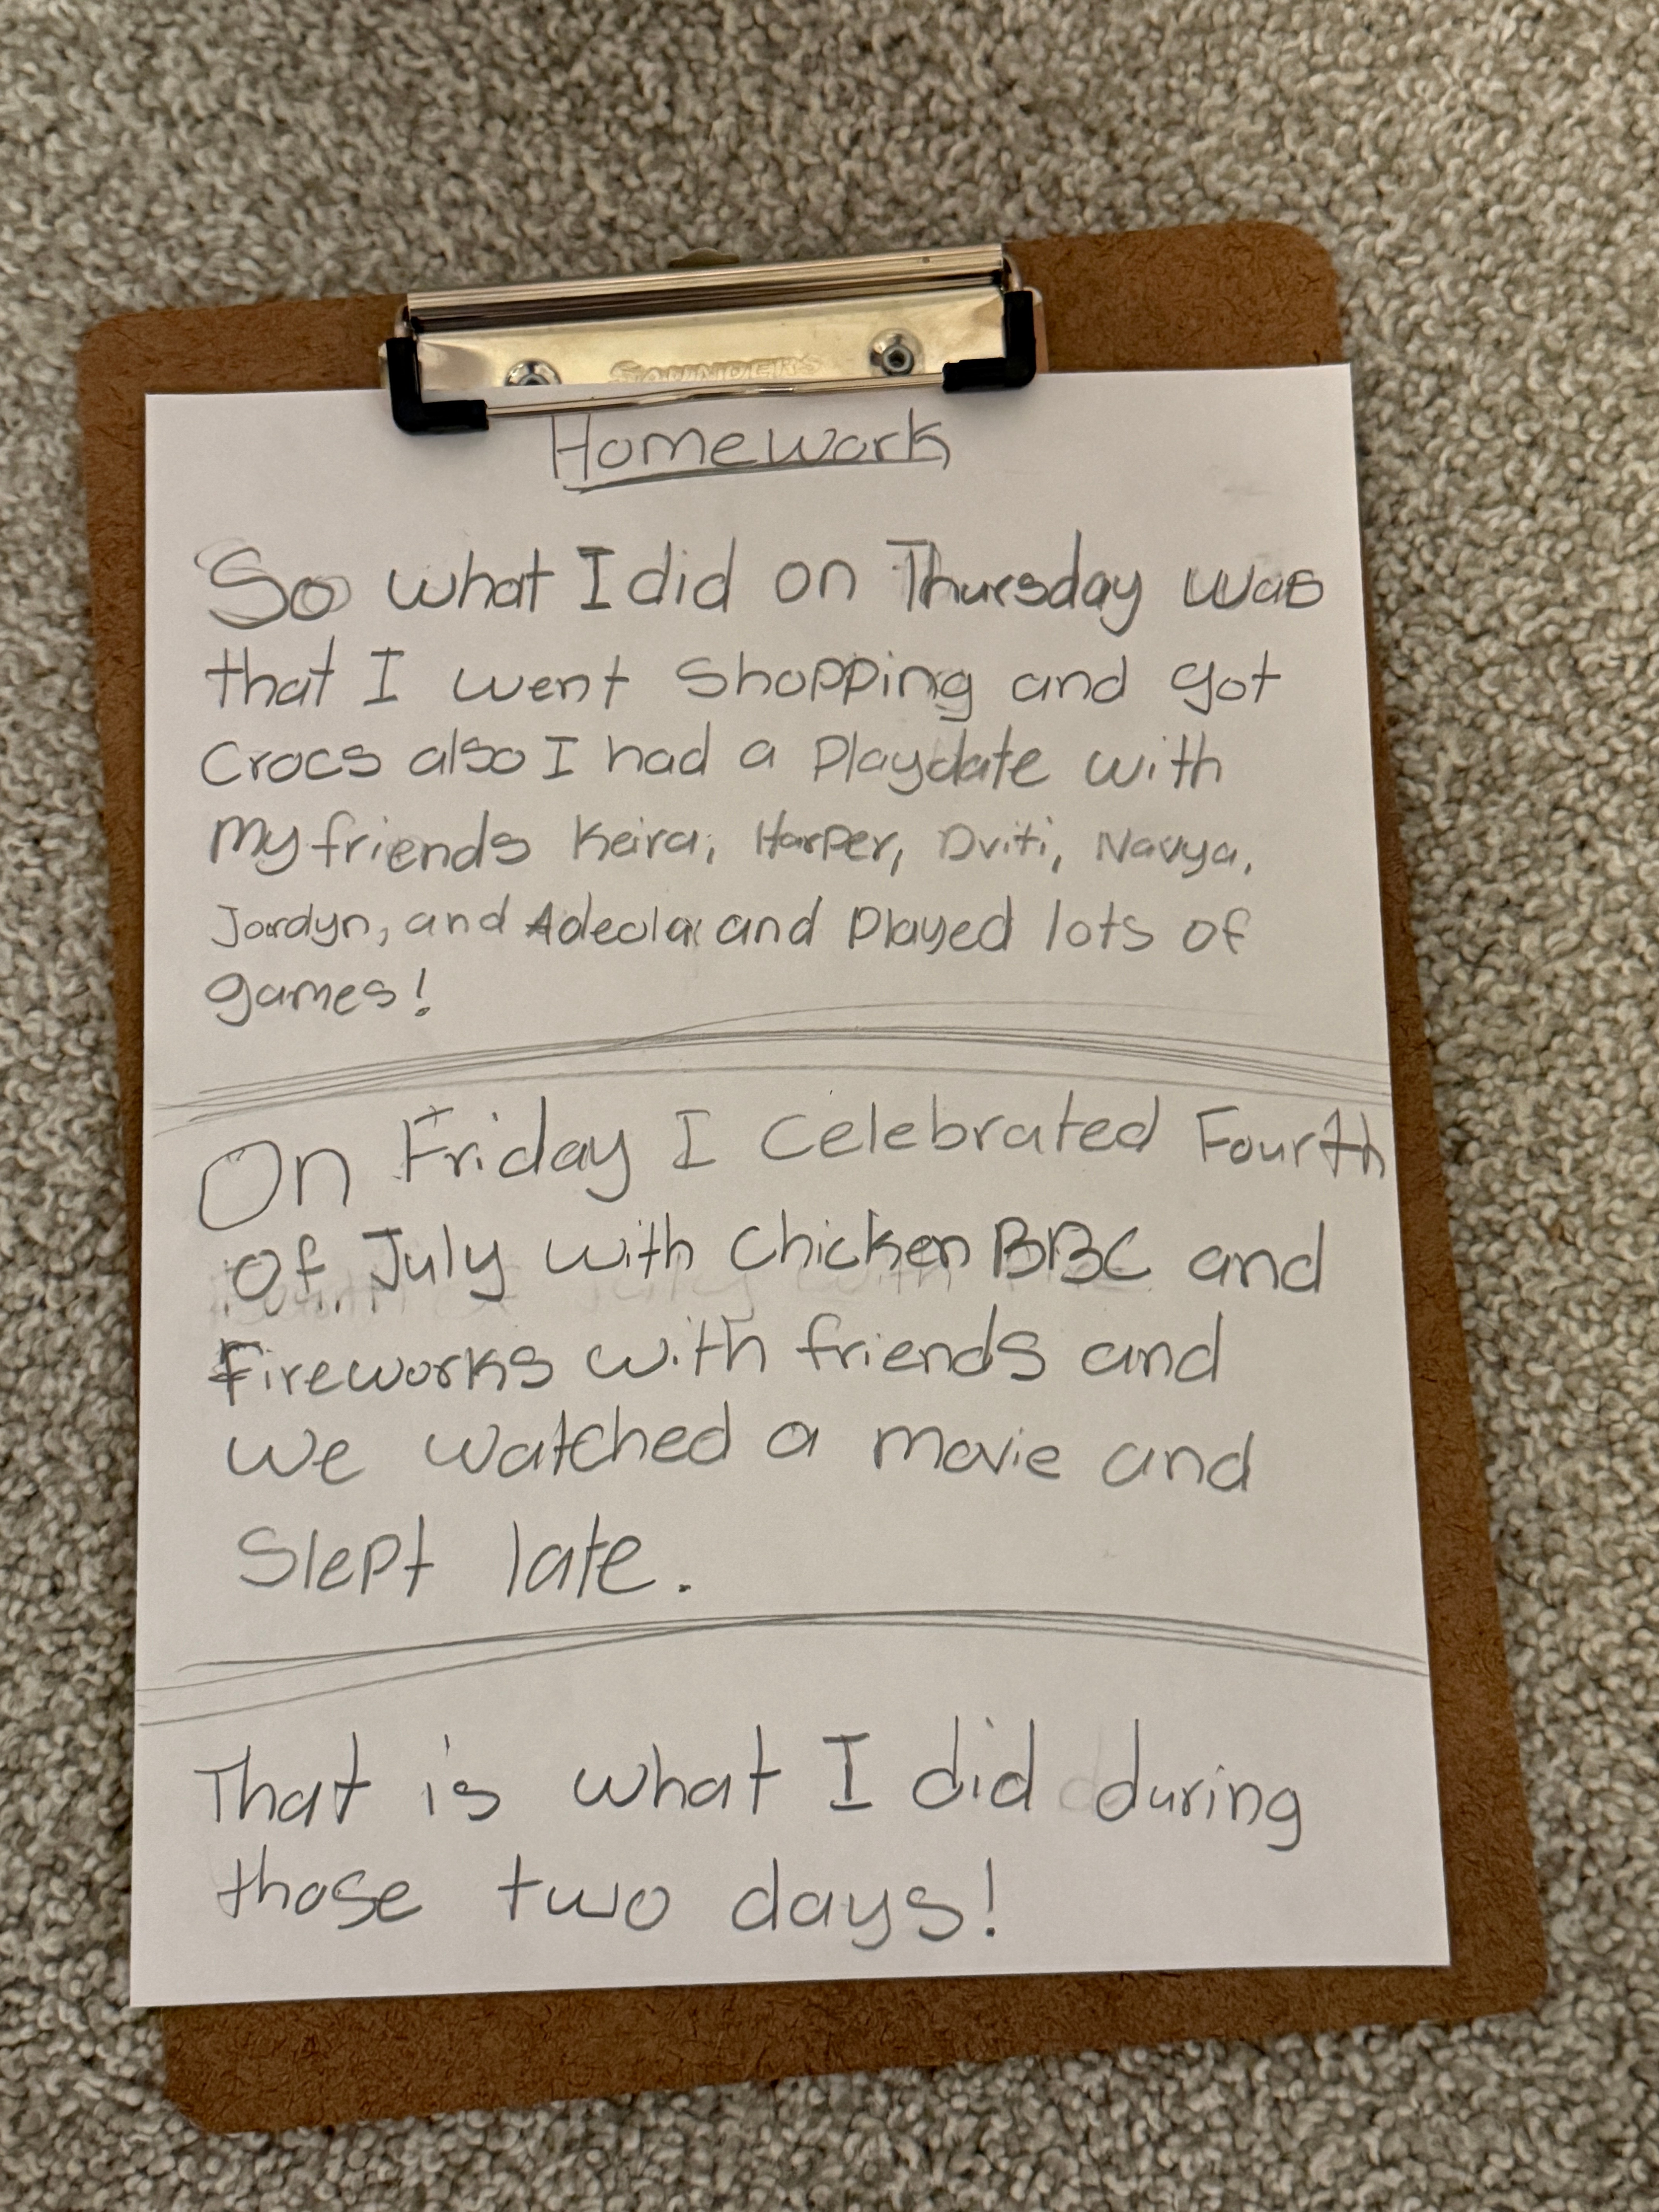 SAUNDERS
Homework
So what I did on Thursday was
that I went shopping and got
Crocs also I had a Playdate with
My friends Keira, Harper, Driti, Navya,
Jordyn, and Adeola and Played lots of
games!
On Friday I celebrated Fourth
Of July with chicken BBC and
Fireworks with friends and
we watched a movie and
Slept late.
That is what I did during
those two days!